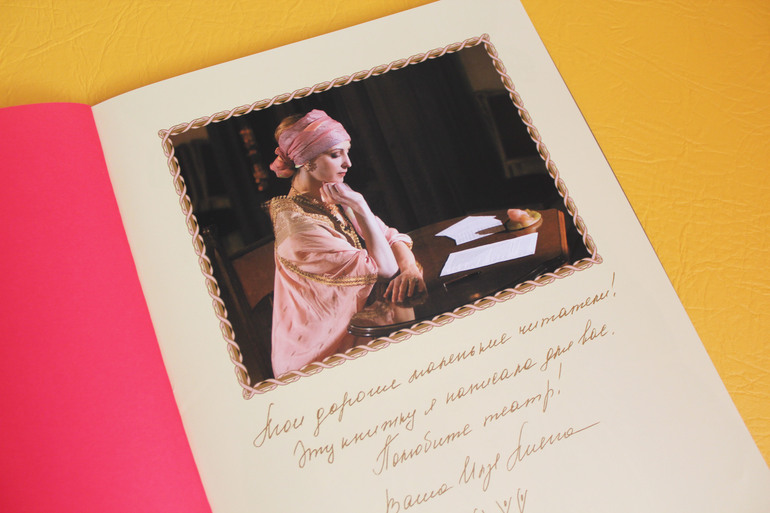 Мои дорогие маленькие читатели!
Эту книжку я написала для вас.
Полюбите театр!
Ваша Илзе Лиепа